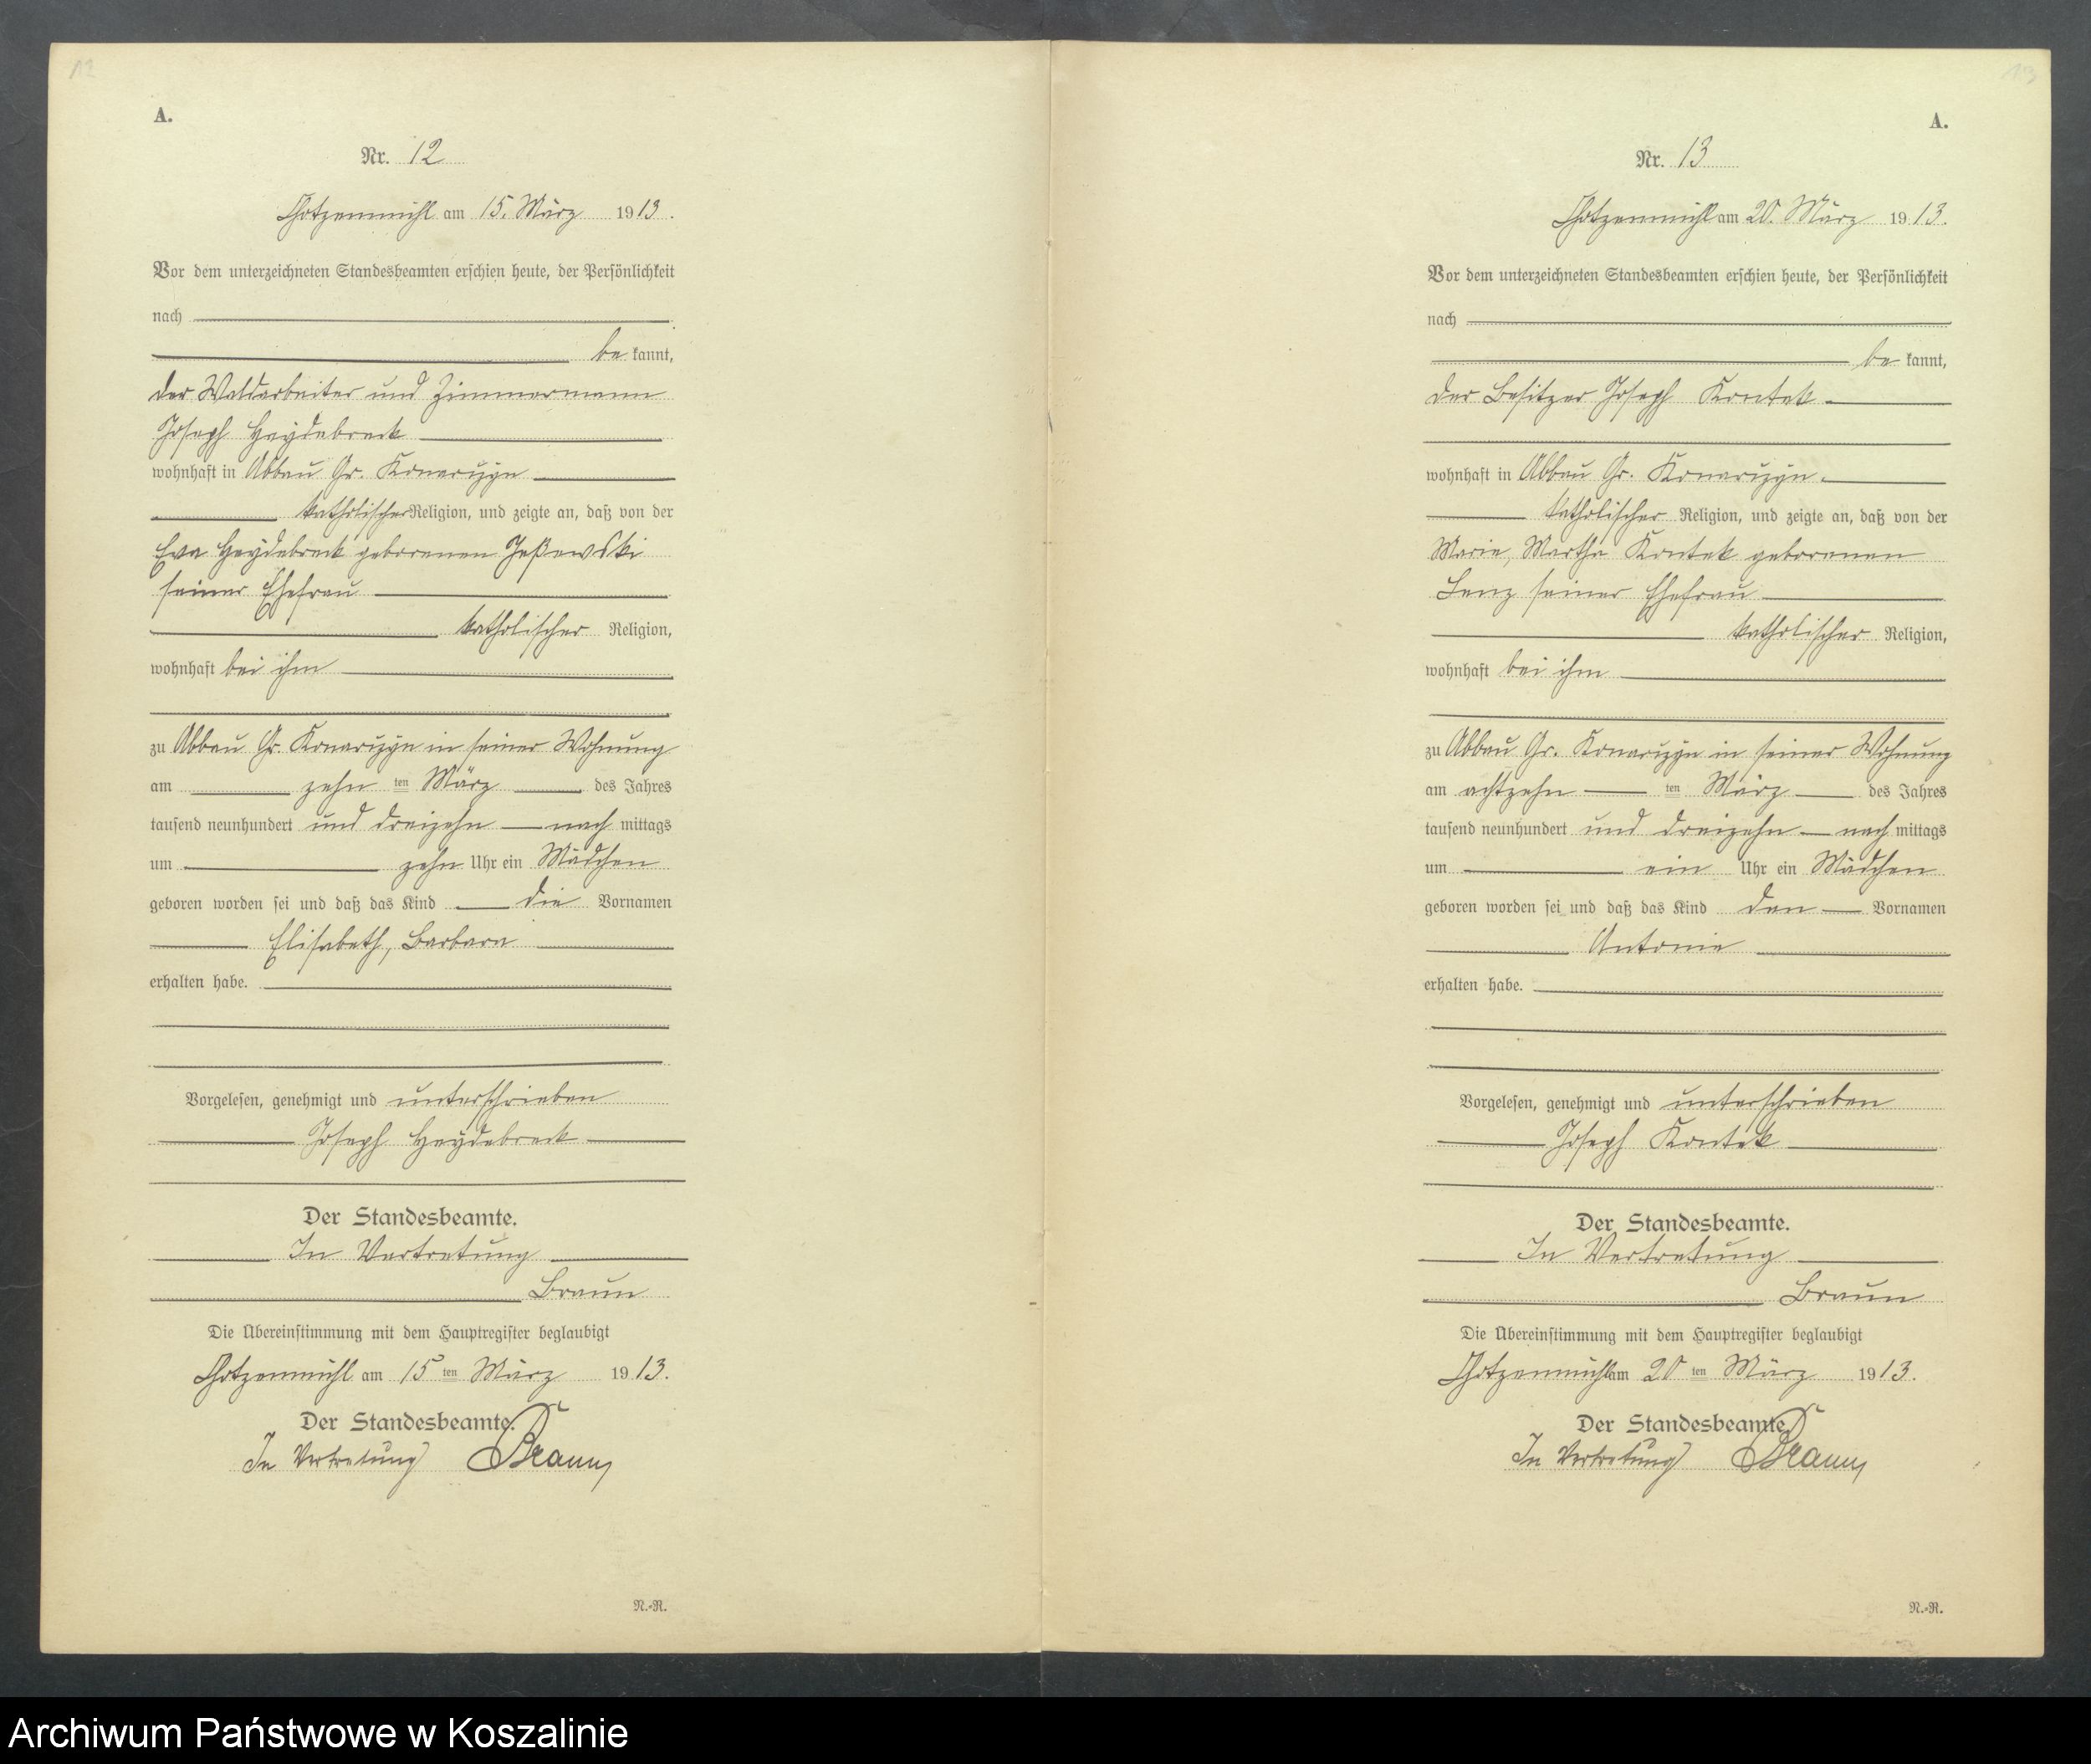 12
A.
Nr. 12
Chotzenmühl am 15. März 1913.
Vor dem unterzeichneten Standesbeamten erschien heute, der Persönlichkeit
nach
be kannt,
der Waldarbeiter und Zimmermann
Joseph Heydebreck
wohnhaft in Abbau Gr. Konarzyn
katholischer Religion, und zeigte an, daß von der
Eva Heydebreck geborenen
seiner Ehefrau
katholischer Religion,
wohnhaft bei ihm
zu Abbau Gr. Konarzyn in seiner Wohnung
am zehn ten März des Jahres
tausend neunhundert und dreizehn nach mittags
um zehn Uhr ein Mädchen
geboren worden sei und daß das Kind die Vornamen
Elisabeth, Barbara
erhalten habe.
Vorgelesen, genehmigt und unterschrieben
Joseph Heydebreck
Der Standesbeamte.
In Vertretung
Braun
Die Übereinstimmung mit dem Hauptregister beglaubigt
Chotzenmühl am 15 ten März 1913.
Der Standesbeamte.
In Vertretung Braun
N.-R.
13
A.
Nr. 13
Chotzenmühl am 20. März 1913.
Vor dem unterzeichneten Standesbeamten erschien heute, der Persönlichkeit
nach
be kannt,
der Besitzer Joseph Kontek
wohnhaft in Abbau Gr. Konarzyn.
katholischer Religion, und zeigte an, daß von der
Marie, Martha Kontek geborenen
Lenz seiner Ehefrau
katholischer Religion,
wohnhaft bei ihm
zu Abbau Gr. Konarzyn in seiner Wohnung
am achtzehn ten März des Jahres
tausend neunhundert und dreizehn nach mittags
um ein Uhr ein Mädchen
geboren worden sei und daß das Kind den Vornamen
Antonie
erhalten habe.
Vorgelesen, genehmigt und unterschrieben
Joseph Kontek
Der Standesbeamte.
In Vertretung
Braun
Die Übereinstimmung mit dem Hauptregister beglaubigt
Chotzenmühl am 20 ten März 1913.
Der Standesbeamte.
In Vertretung Braun
N.-R.
Archiwum Państwowe w Koszalinie